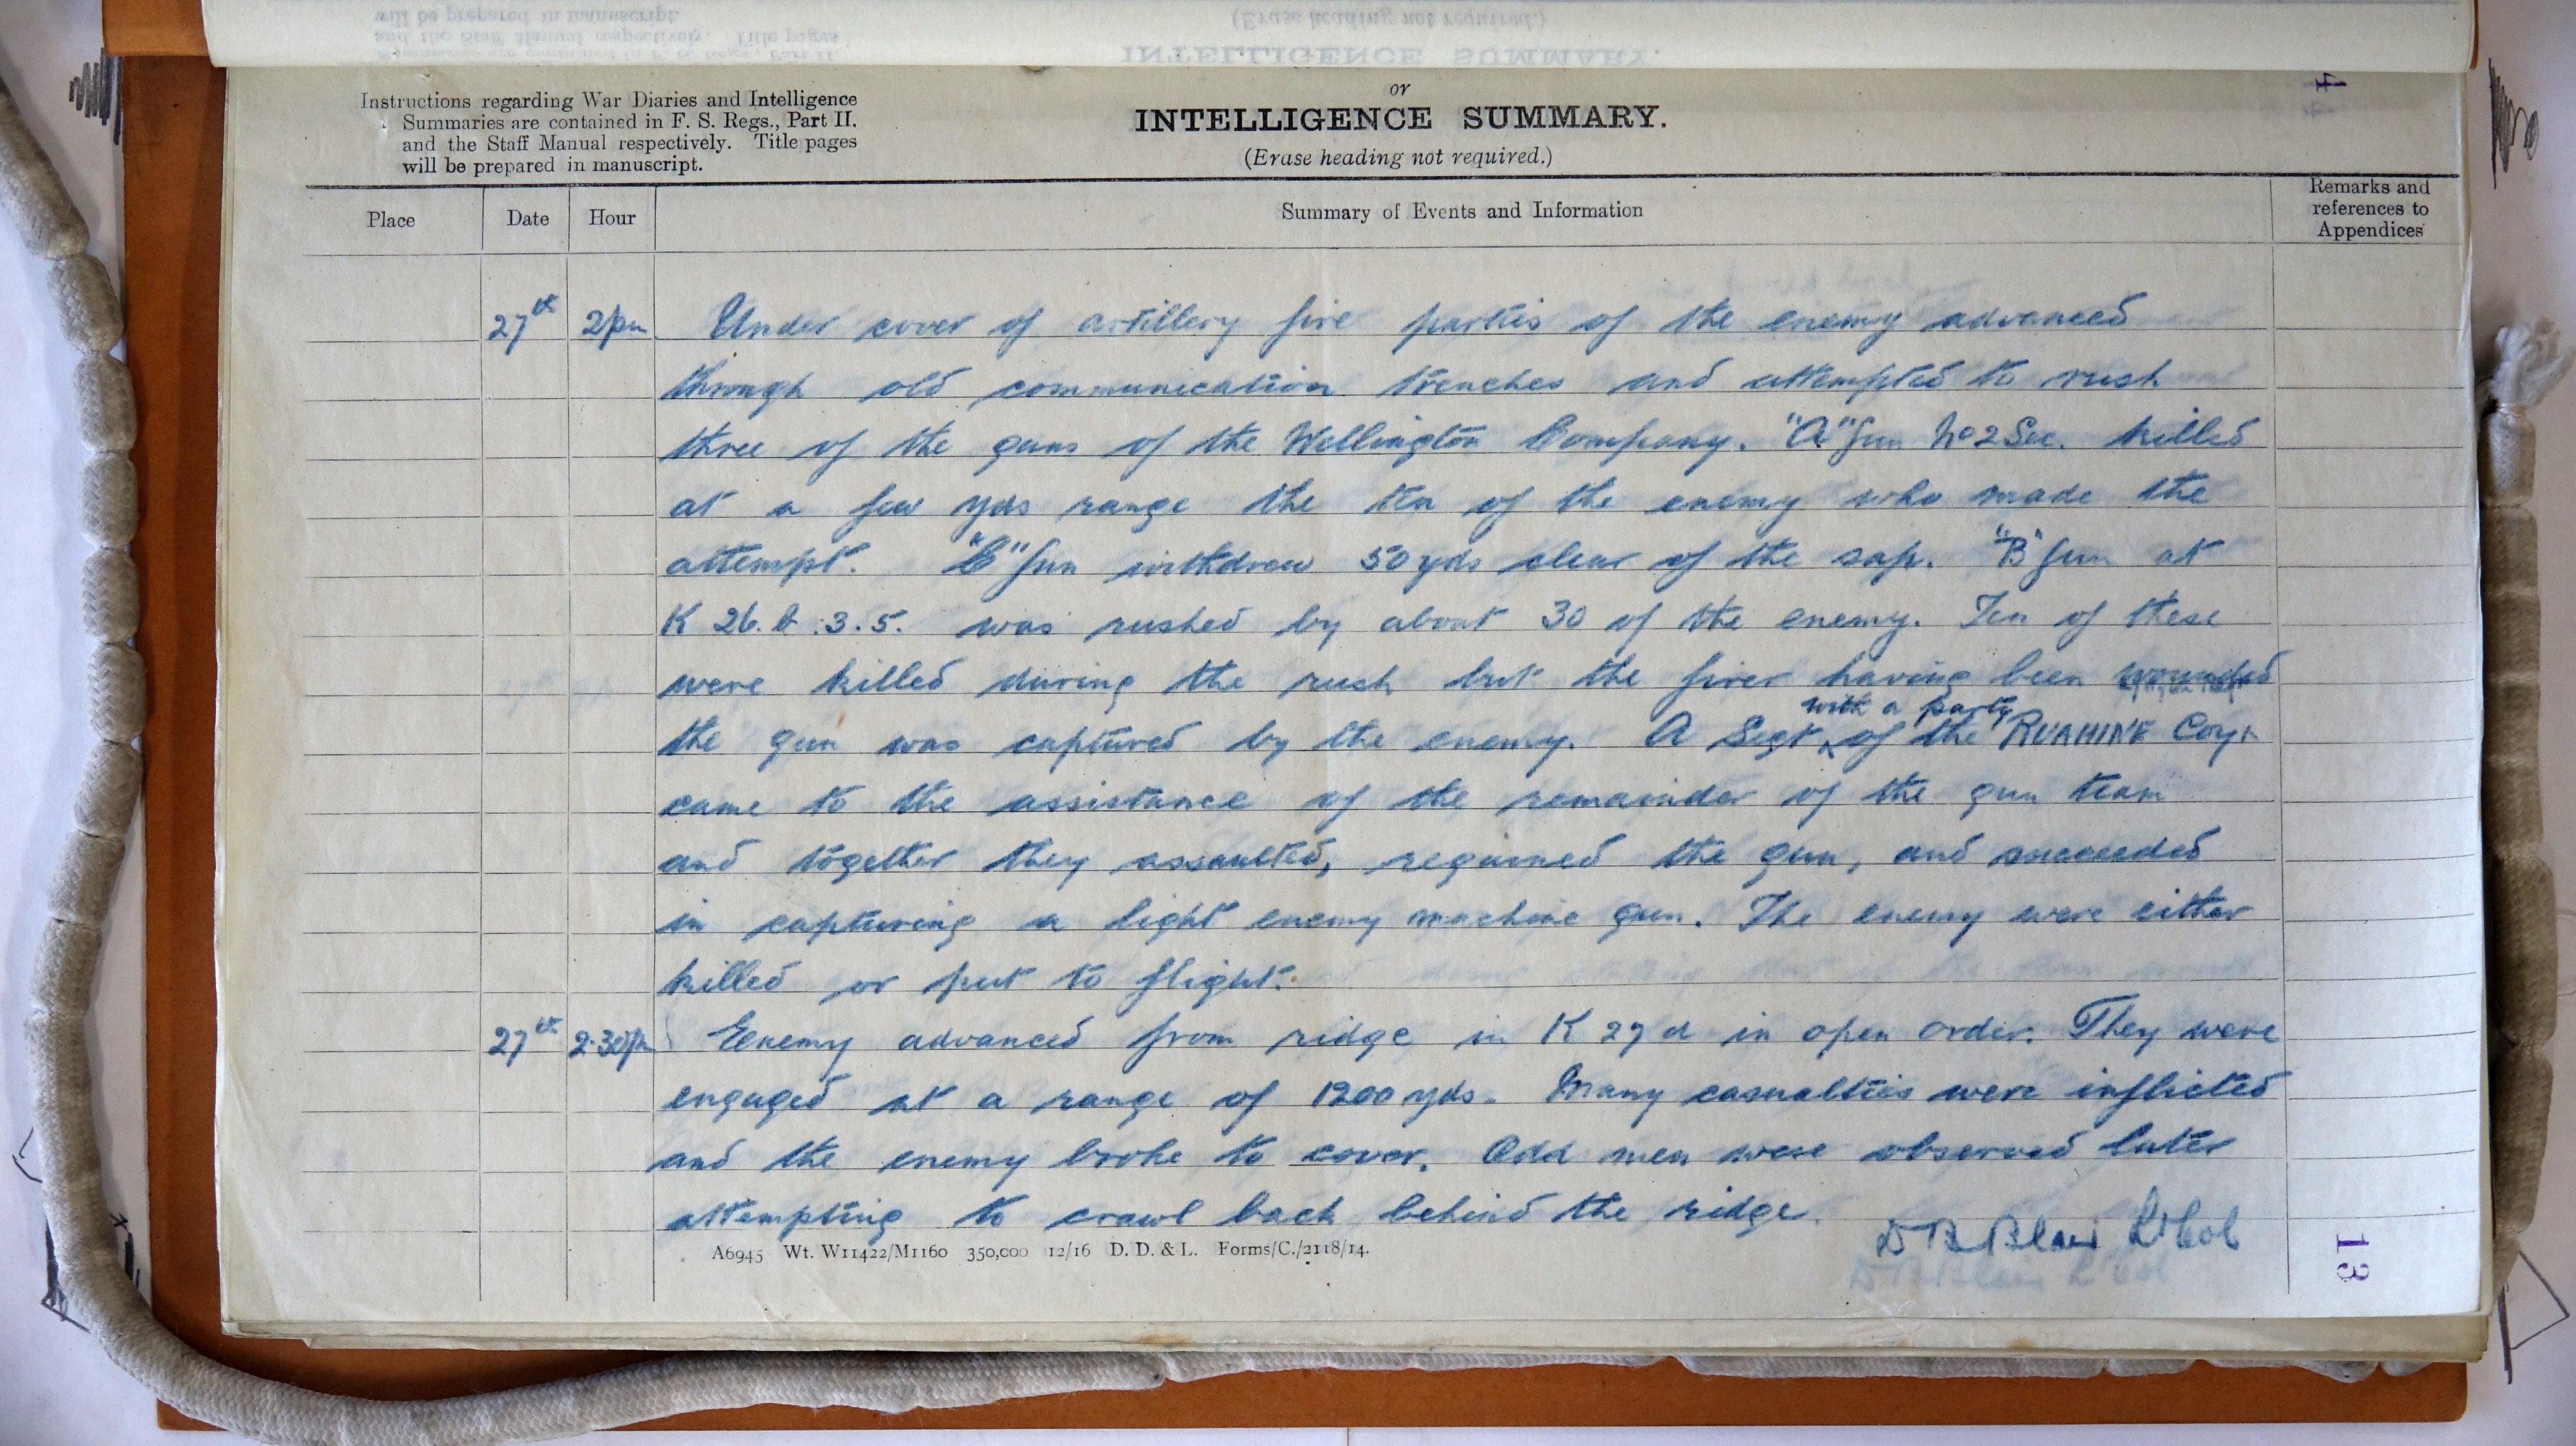 Instructions regarding War Diaries and Intelligence
Summaries are contained in F. S. Regs., Part II.
and the Staff Manual respectively. Title pages
will be prepared in manuscript.
or
INTELLIGENCE SUMMARY.
(Erase heading not required.)
Place Date Hour Summary of Events and Information Remarks and references to Appendices
27th 2pm Under cover of artillery fire parties of the enemy advanced
through old communication trenches and attempted to rush
three of the guns of the Wellington Company. "A" Gun No 2 Sec. killed
at a few yds range the ten of the enemy who made the
attempt. "C" Gun withdrew 50 yds clear of the sap. "B" Gun at
K 26. b. 3.5. was rushed by about 30 of the enemy. Ten of these
were killed during the rush but the firer having been wounded
the gun was captured by the enemy. A Segt with a party of the RUAHINE Coy
came to the assistance of the remainder of the gun team
and together they assaulted, regained the gun, and succeeded
in capturing a light enemy machine gun. The enemy were either
killed or put to flight.
27th 2.30pm Enemy advanced from ridge in K 27 d in open order. They were
engaged at a range of 1200 yds. Many casualties were inflicted
and the enemy broke to cover. Odd men were observed later
attempting to crawl back behind the ridge.
D B Blair Lt Col
A6945 Wt. W11422/M1160 350,000 12/16 D. D. & L. Forms/C./2118/14.
13